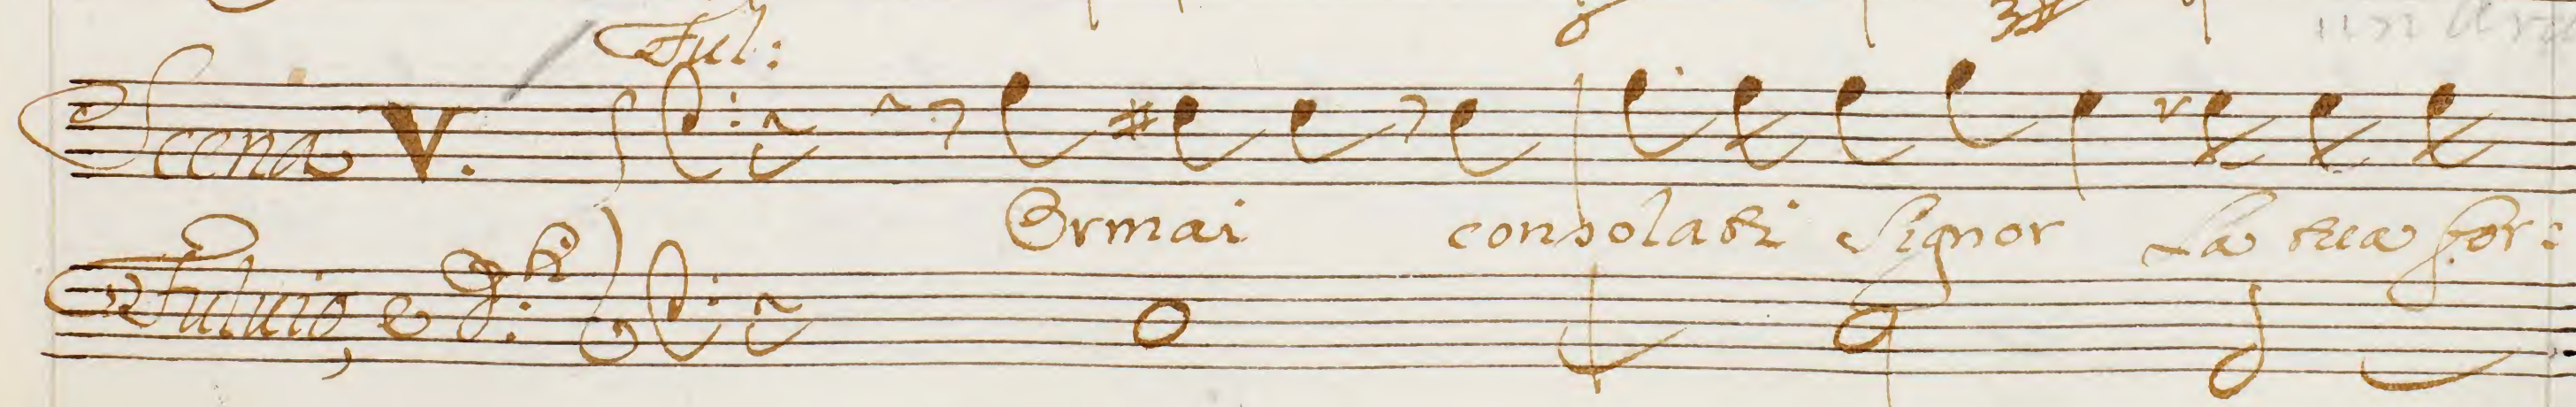 Ful:
Scena V.
Ormai consolati Signor La tua for:
Fuluio, e d.ti